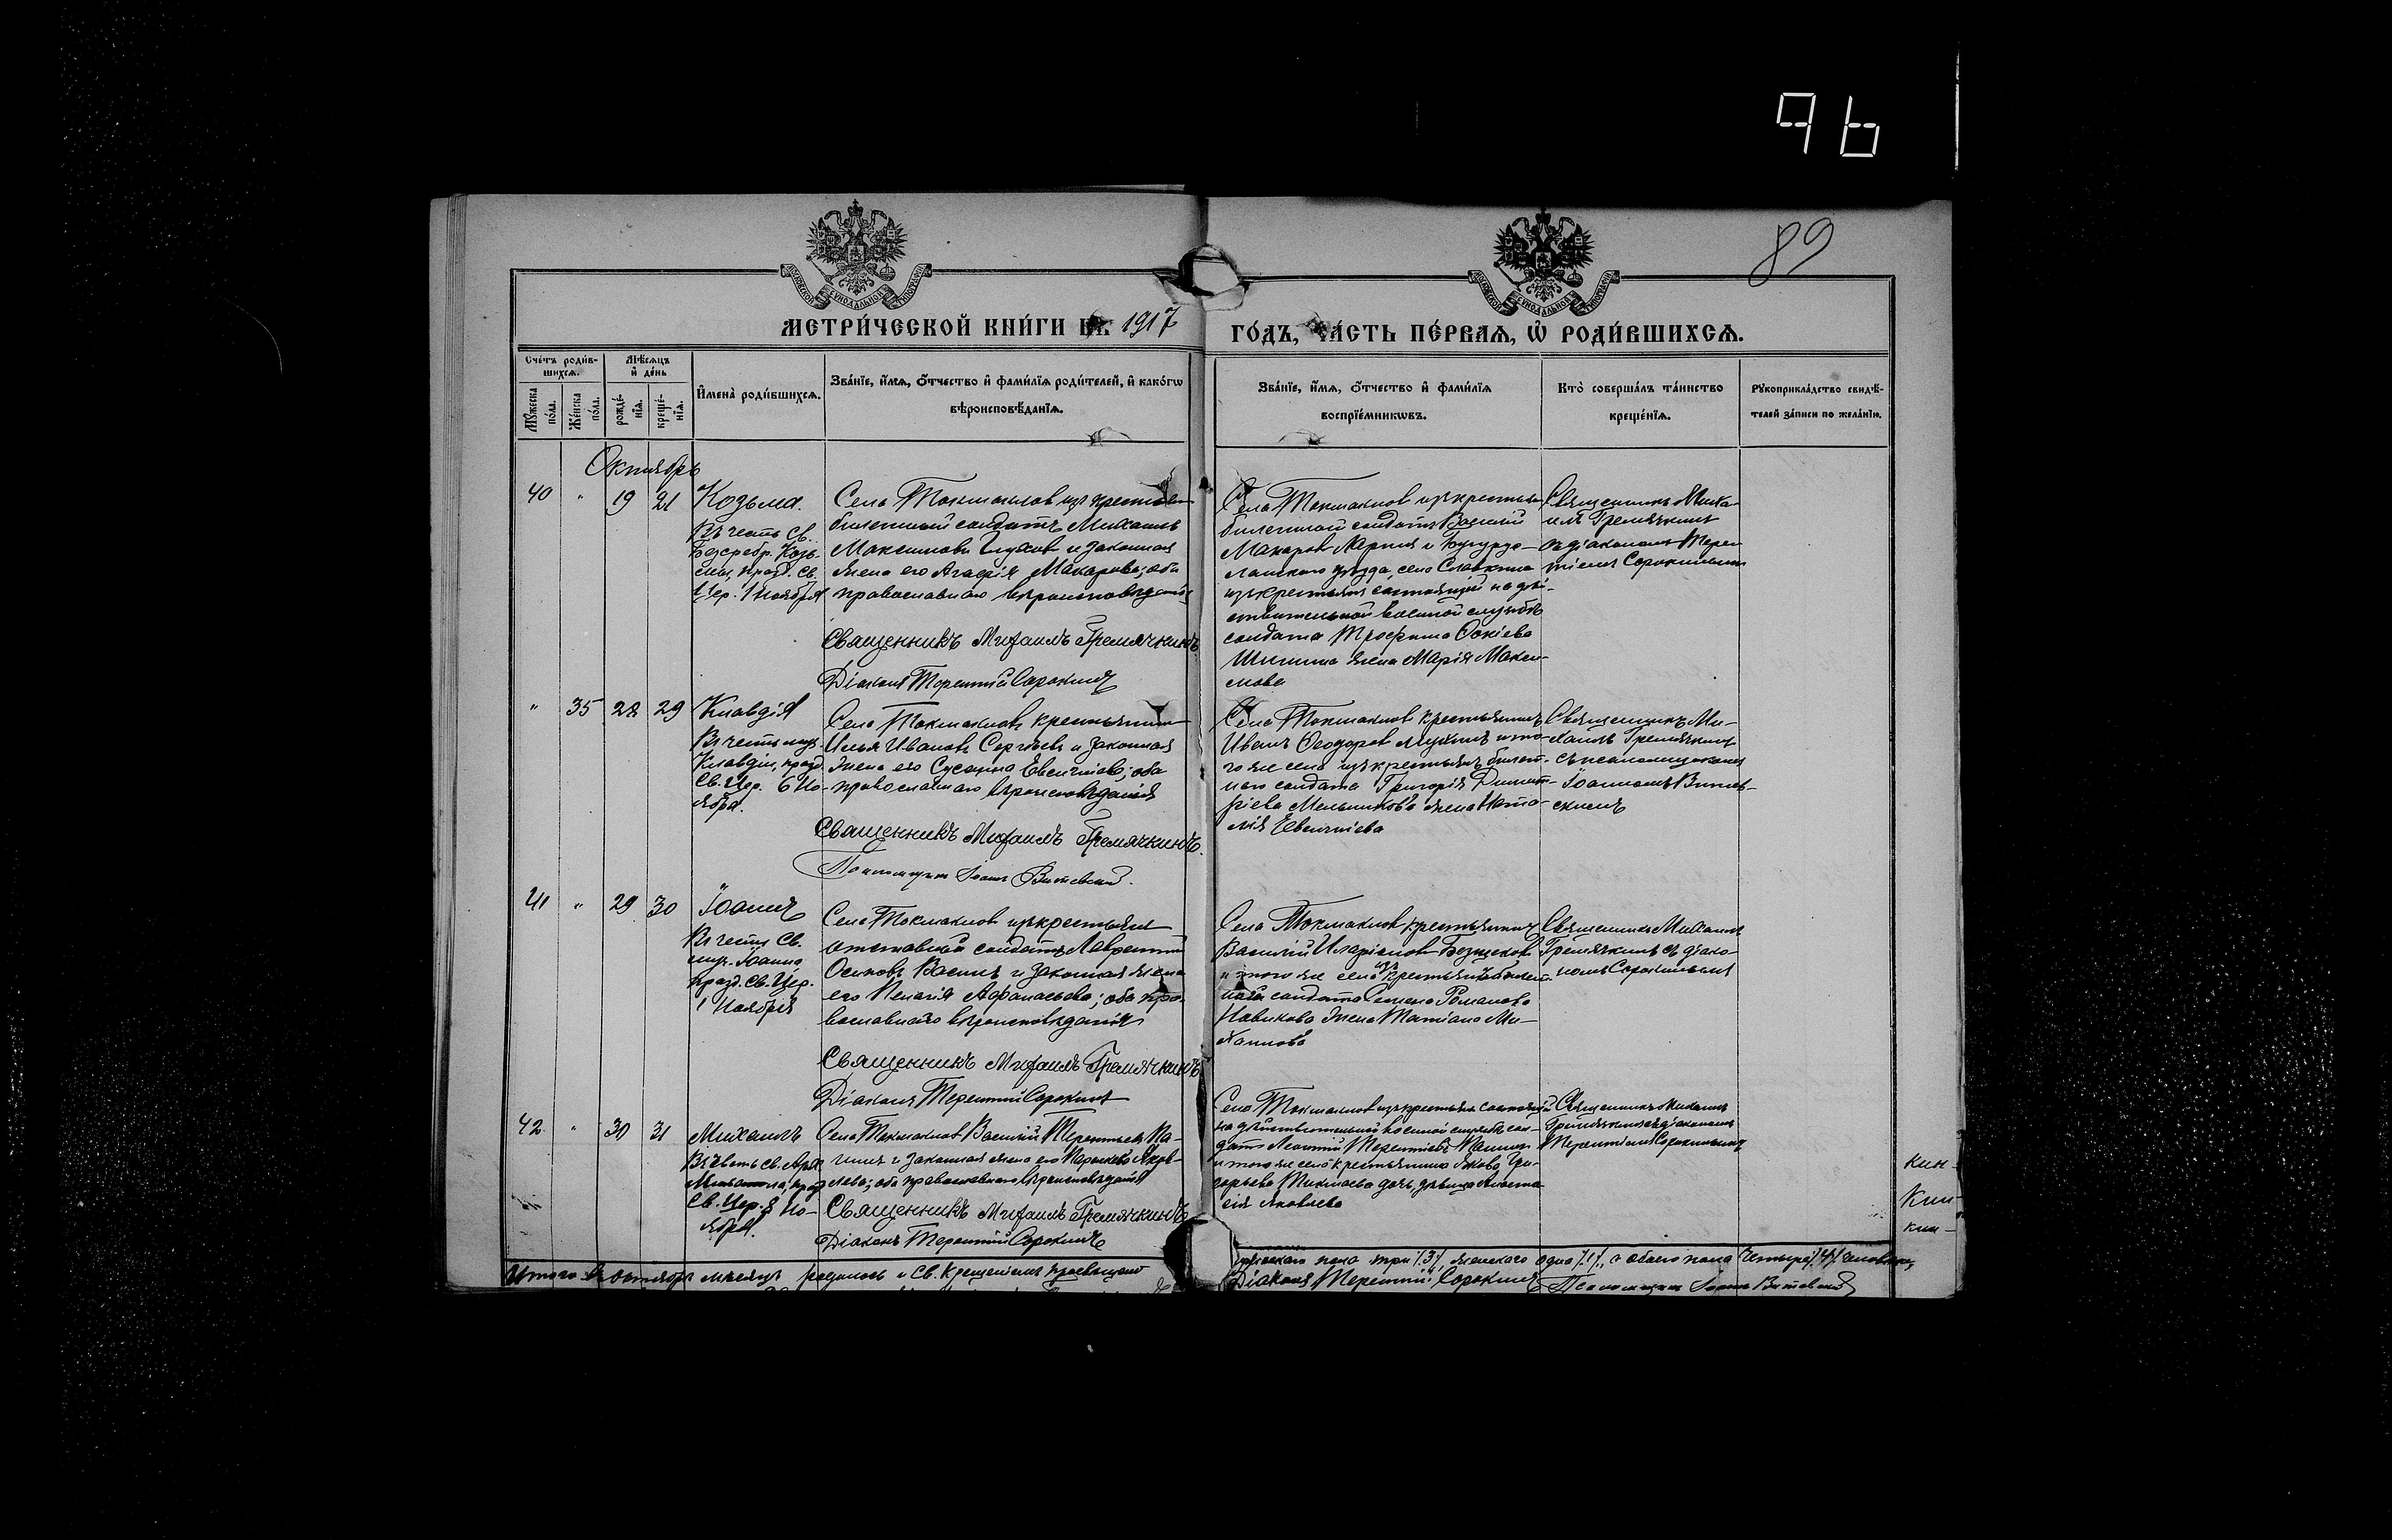 96
89
МОСКОВСКОЙ СѴНОДАЛЬНОЙ ТИПОГРАФІИ
МОСКОВСКОЙ СѴНОДАЛЬНОЙ ТИПОГРАФІИ
МЕТРИ́ЧЕСКОЙ КНИ́ГИ НА 1917
ГО́ДЪ, ЧА́СТЬ ПЕ́РВАѦ, Ѽ РОДИ́ВШИХСѦ.
Сче́тъ роди́в-
шихсѧ.
Мѣ́сѧцъ
и҆ де́нь
Мꙋ́жеска
по́ла.
Же́нска
по́ла.
рожде́-
нїѧ.
креще́-
нїѧ.
И҆мена̀ роди́вшихсѧ.
Зва́нїе, и҆́мѧ, ѻ҆́тчество и҆ фами́лїѧ роди́телей, и҆ како́гѡ
вѣроисповѣ́данїѧ.
Зва́нїе, и҆́мѧ, ѻ҆́тчество и҆ фами́лїѧ
воспрїе́мникѡвъ.
Кто̀ соверша́лъ та́инство
креще́нїѧ.
Рꙋкоприкла́дство свидѣ́-
телей за́писи по жела́нїю.
Октябрь
40 " 19 21
Козьма.
Въ честь Св.
Безсребр. Козь-
мы, празд. Св.
Цер. 1 Ноября
Села Токмаклов изъ крестьян
билетный солдатъ Михаилъ
Максимовъ Глухов и законная
жена его Агафія Макарова; оба
православнаго вѣроисповѣданія
Священникъ Михаилъ Гремячкинъ
Діаконъ Терентій Сорокинъ
Села Токмаклов изъ крестьян
билетный солдатъ Василій
Макаров и Бугурус-
ланскаго уѣзда, села Славкина
изъ крестьянъ состоящій на дѣй-
ствительной военной службѣ
солдата Трофима
жена Марія Макси-
мова
Священникъ Миха-
илъ Гремячкинъ
съ діакономъ Терен-
тіемъ Сорокинымъ
" 35 28 29
Клавдія
Въ честь муч.
Клавдіи, празд.
Св. Цер. 6 Но-
ября.
Села Токмаклов крестьянинъ
Илья Иванов Сергѣевъ и законная
жена его Сусанна Евгеніева; оба
православнаго вѣроисповѣданія
Священникъ Михаилъ Гремячкинъ.
Псаломщикъ Іоаннъ Витевскій.
Села Токмаклов крестьянинъ
Иванъ Ѳеодоров и то-
го же села изъ крестьянъ билет-
наго солдата Григорія Димит-
ріева Мельникова жена Ната-
лія Евгеніева
Священникъ Ми-
хаилъ Гремячкинъ
съ псаломщикомъ
Іоанномъ Витев-
скимъ
41 " 29 30
Іоаннъ
Въ честь Св.
муч. Іоанна
празд. Св. Цер.
1 Ноября
Села Токмаклов изъ крестьян
отставной солдатъ Лаврентій
Осиповъ Васинъ и законная жена
его Пелагія Афанасьева; оба пра-
вославнаго вѣроисповѣданія
Священникъ Михаилъ Гремячкинъ
Діаконъ Терентій Сорокинъ
Села Токмаклов крестьянинъ
Василій Иларіонов
и того же села изъ крестьянъ билет-
наго солдата Семена Романова
Новикова жена Татіана Ми-
хаилова
Священникъ Михаилъ
Гремячкинъ съ діако-
номъ Сорокинымъ
42 " 30 31
Михаилъ
Въ честь Св. Арх.
Михаила, празд.
Св. Цер. 8 Но-
ября.
Села Токмаклов Василій Терентьев Па-
нинъ и законная жена его Параскева Яков-
лева; оба православнаго вѣроисповѣданія
Священникъ Михаилъ Гремячкинъ
Діаконъ Терентій Сорокинъ
Села Токмаклов изъ крестьянъ состоящій
на дѣйствительной военной службѣ сол-
датъ Леонтій Терентьевъ Панинъ
и того же села крестьянина Якова Гри-
горьева дочь, дѣвица Анаста-
сія Яковлева
Священникъ Михаилъ
Гремячкинъ съ діакономъ
Терентіемъ Сорокинымъ
кин-
Кин-
кин-
Итого въ октябрѣ мѣсяцѣ родилось и Св. Крещеніемъ просвѣщено
мужскаго пола три /3/, женскаго одна /1/, а обоего пола четыре /4/ человѣка,
Діаконъ Терентій Сорокинъ
Псаломщикъ Іоаннъ Витевскій